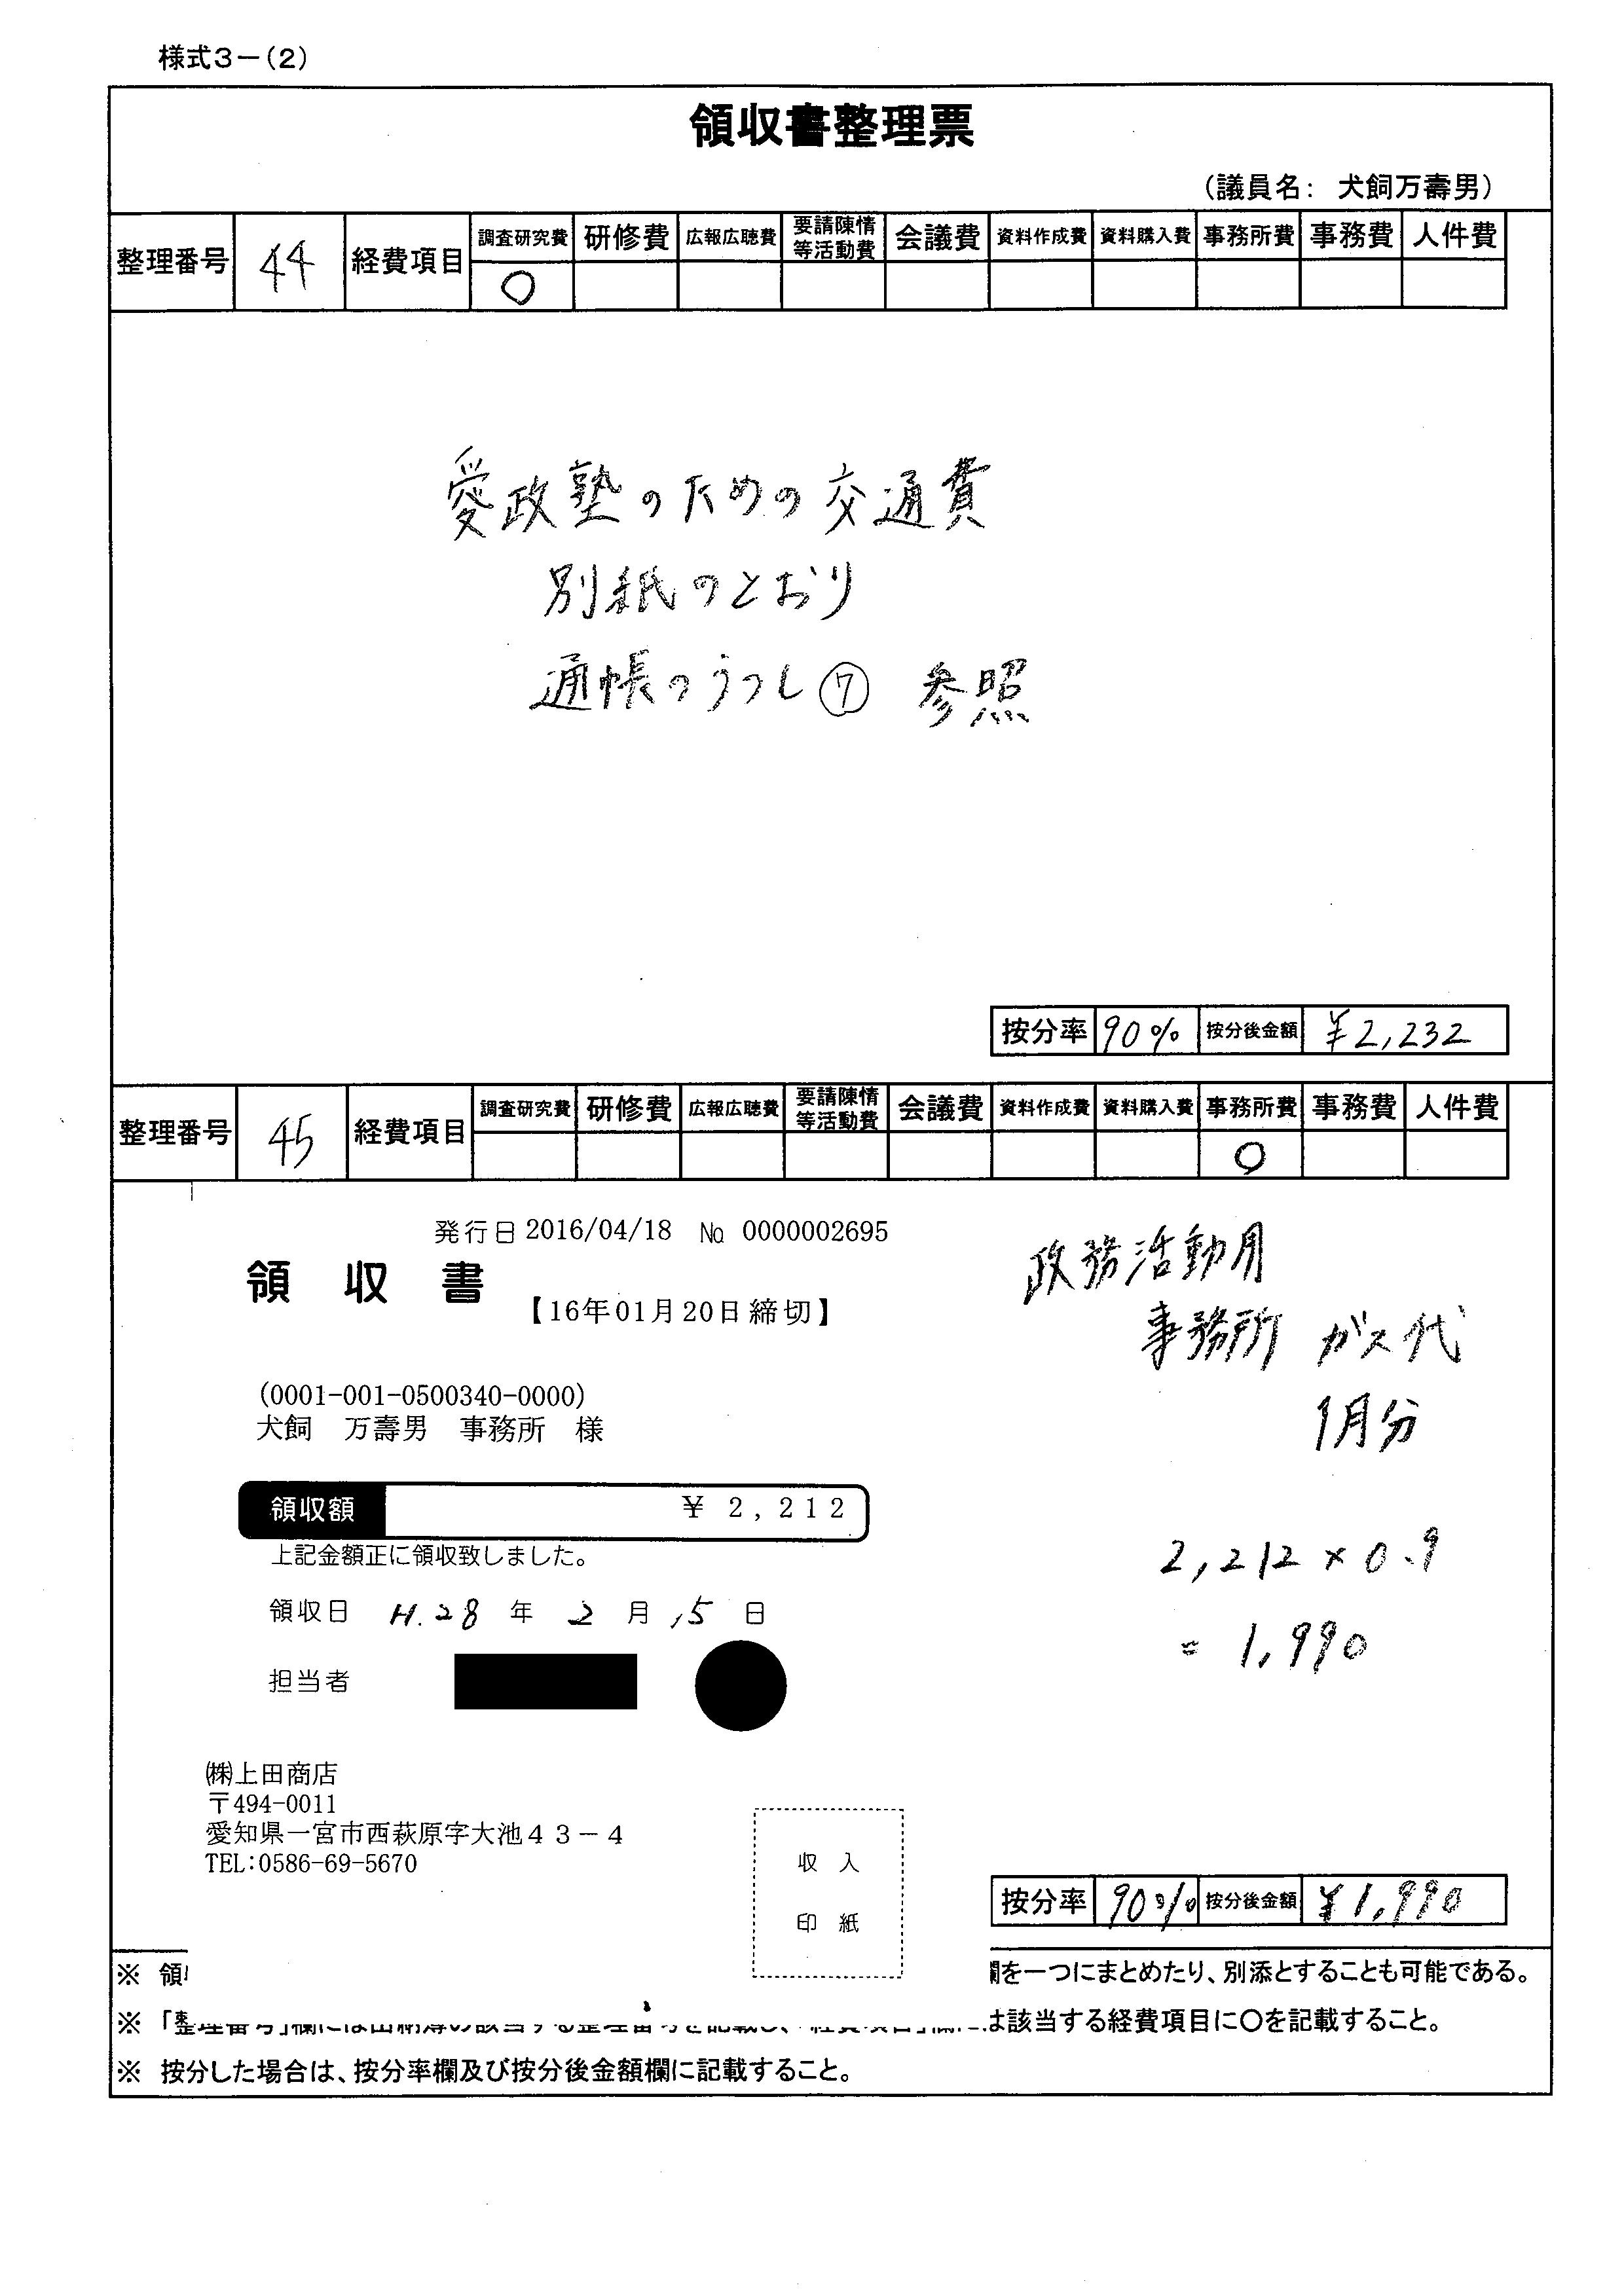 様式3－(2)
領収書整理票
（議員名： 犬飼万壽男）
整理番号 44 経費項目 調査研究費 研修費 広報広聴費 要請陳情等活動費 会議費 資料作成費 資料購入費 事務所費 事務費 人件費
○
愛政塾のための交通費
別紙のとおり
通帳のうつし⑦ 参照
按分率 90% 按分後金額 ¥2,232
整理番号 45 経費項目 調査研究費 研修費 広報広聴費 要請陳情等活動費 会議費 資料作成費 資料購入費 事務所費 事務費 人件費
○
発行日 2016/04/18 No 0000002695
領収書
【16年01月20日締切】
(0001-001-0500340-0000)
犬飼 万壽男 事務所 様
領収額 ¥2,212
上記金額正に領収致しました。
領収日 H.28年 2月15日
担当者
㈱上田商店
〒494-0011
愛知県一宮市西萩原字大池４３－４
TEL:0586-69-5670
収入
印紙
政務活動用
事務所 ガス代
1月分
2,212×0.9
=1,990
按分率 90% 按分後金額 ¥1,990
※ 領 を一つにまとめたり、別添とすることも可能である。
※ 「整理番号」欄には出納簿の該当する整理番号を記載し、「経費項目」欄には該当する経費項目に○を記載すること。
※ 按分した場合は、按分率欄及び按分後金額欄に記載すること。